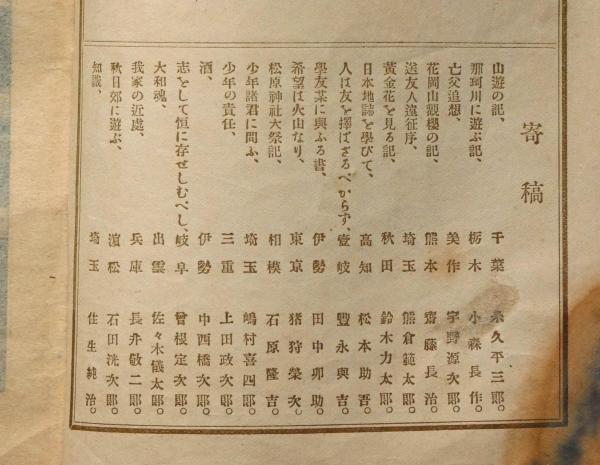 寄稿
山遊の記、 千葉 糸久平三郞。
那珂川に遊ぶ記、 栃木 小森長作。
亡父追想、 美作 宇野源次郞。
花岡山觀櫻の記、 熊本 齋藤長治。
送友人遠征序、 埼玉 熊倉範太郞。
黃金花を見る記、 秋田 鈴木力太郞。
日本地誌を學びて、 高知 松本助吾。
人は友を擇ばざるべからず、 壹岐 豐永與吉。
學友某に與ふる書、 伊勢 田中卯助。
希望は火山なり、 東京 猪狩榮次。
松原神社大祭記、 相模 石原隆吉。
少年諸君に問ふ、 埼玉 嶋村喜四郞。
少年の責任、 三重 上田政次郞。
酒、 伊勢 中西橋次郞。
志をして恒に存せしむべし、 岐阜 曾根定次郞。
大和魂、 出雲 佐々木儀太郞。
我家の近處、 兵庫 長井敬二郞。
秋日郊に遊ぶ、 濱松 石田洸次郞。
知識、 埼玉 住生純治。